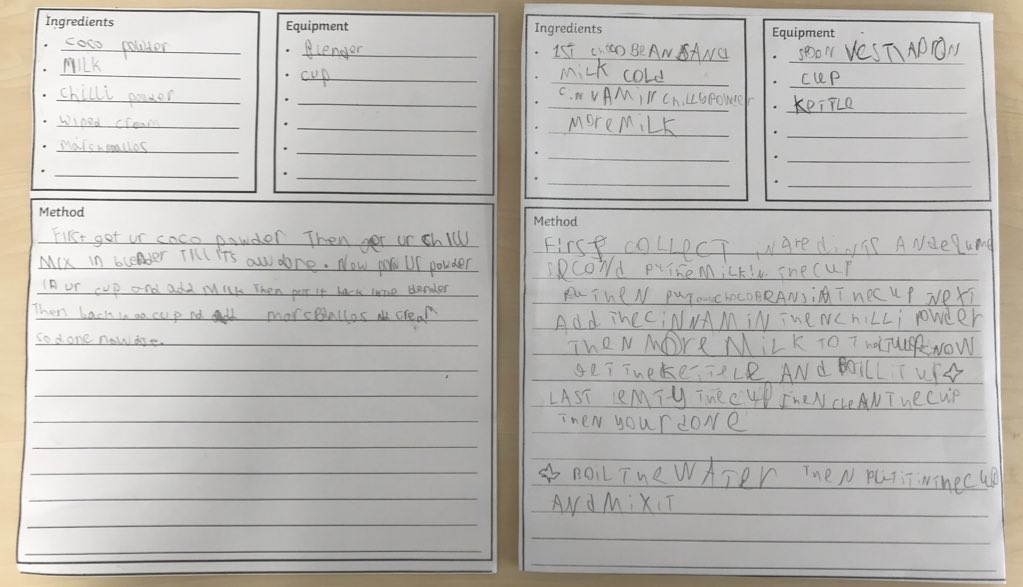 Ingredients
coco powder
MILK
chilli powder
wiped cream
marshmallos
Equipment
Blender
cup
Method
First get ur coco powder Then get ur chilli
Mix in blender Till its all done. Now ur powder
in ur cup and add Milk Then put it back blender
Then back in a cup marshallos cream
so done
Ingredients
1ST choco BEANS AND
MILK COLD
CINNAMIN chilly powder
MORE MILK
Equipment
SPOON
CUP
KETTLE
Method
First COLLECT AND
SECOND PUT THE MILK IN THE CUP
THEN PUT IN THE CUP NEXT
Add The CINNAMIN THEN chilli powder
THEN MORE MILK TO THE NOW
GET THE AND BOILL IT UP
LAST EMTY THE CUP THEN CLEAN THE CUP
THEN YOUR DONE
BOIL THE WATER THEN PUT IT IN THE CUP
AND MIX IT